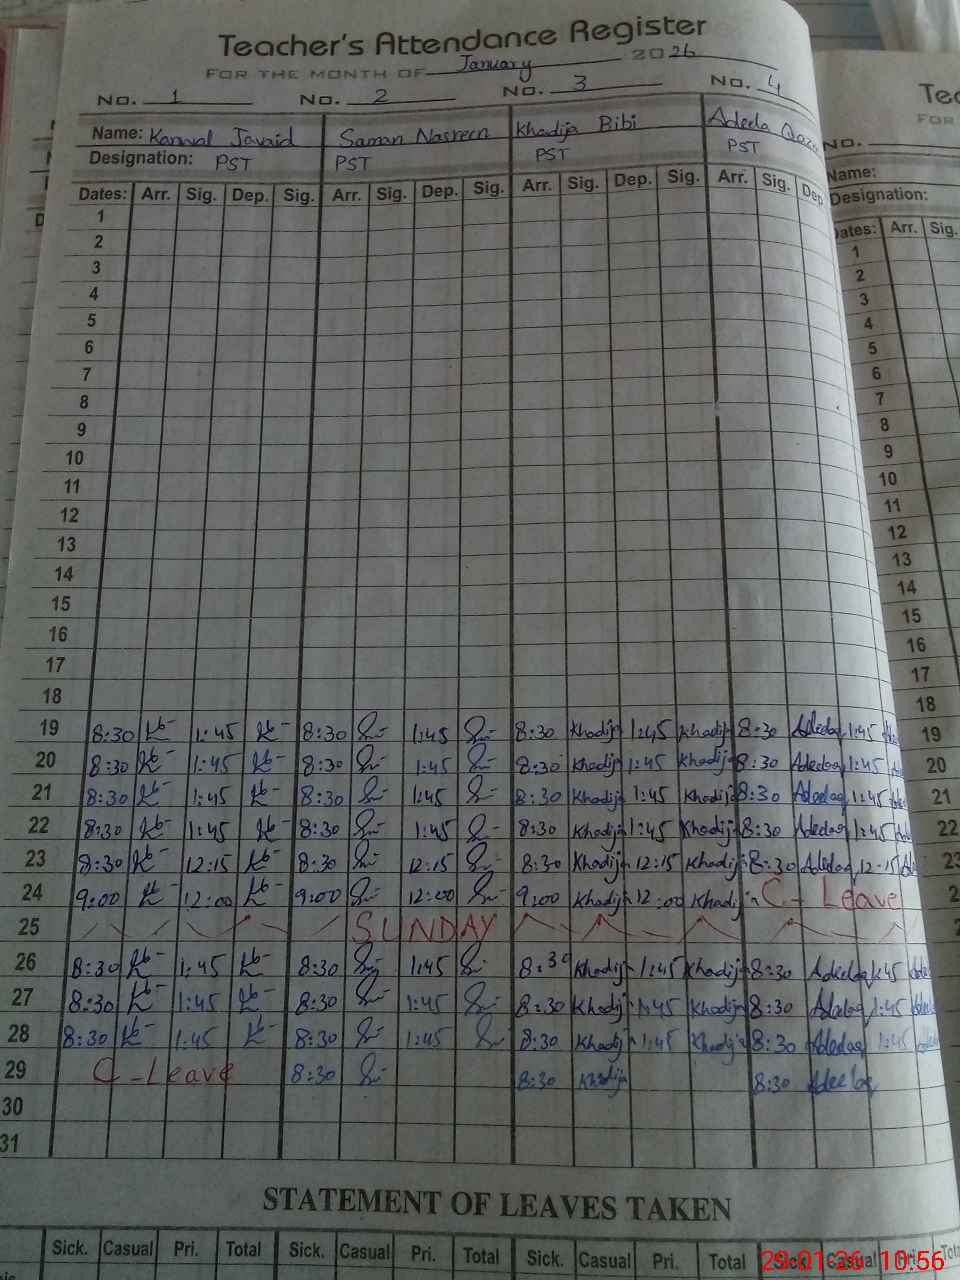 Teacher's Attendance Register
FOR THE MONTH OF January 2026
No. 1 No. 2 No. 3 No. 4
Name: Kanwal Javaid Saman Nasreen Khadija Bibi Adeela
Designation: PST PST PST PST
Dates: Arr. Sig. Dep. Sig. Arr. Sig. Dep. Sig. Arr. Sig. Dep. Sig. Arr. Sig. Dep.
1
2
3
4
5
6
7
8
9
10
11
12
13
14
15
16
17
18
19 8:30 1:45 8:30 1:45 8:30 Khadija 1:45 Khadija 8:30 Adeelaq 1:45
20 8:30 1:45 8:30 1:45 8:30 Khadija 1:45 Khadija 8:30 Adeelaq 1:45
21 8:30 1:45 8:30 1:45 8:30 Khadija 1:45 Khadija 8:30 Adeelaq 1:45
22 8:30 1:45 8:30 1:45 8:30 Khadija 1:45 Khadija 8:30 Adeelaq 1:45
23 8:30 12:15 8:30 12:15 8:30 Khadija 12:15 Khadija 8:30 Adeelaq 12:15
24 9:00 12:00 9:00 12:00 9:00 Khadija 12:00 Khadija C-Leave
25 SUNDAY
26 8:30 1:45 8:30 1:45 8:30 Khadija 1:45 Khadija 8:30 Adeelaq 1:45
27 8:30 1:45 8:30 1:45 8:30 Khadija 1:45 Khadija 8:30 Adeelaq 1:45
28 8:30 1:45 8:30 1:45 8:30 Khadija 1:45 Khadija 8:30 Adeelaq 1:45
29 C-Leave 8:30 8:30 Khadija 8:30 Adeelaq
30
31
STATEMENT OF LEAVES TAKEN
Sick. Casual Pri. Total Sick. Casual Pri. Total Sick. Casual Pri. Total Sick. Casual Pri.
29-01-26 10:56
No.
Name:
Designation:
Dates: Arr. Sig.
1
2
3
4
5
6
7
8
9
10
11
12
13
14
15
16
17
18
19
20
21
22